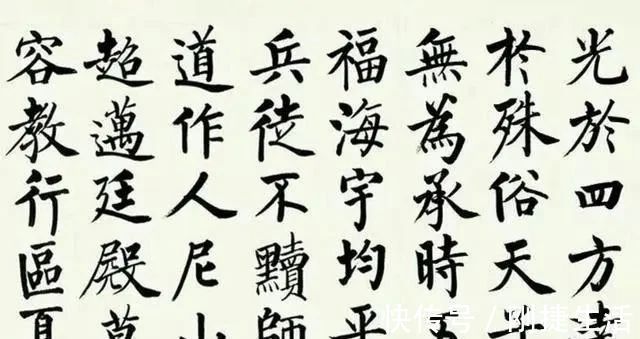 光於四方
於殊俗天
無為承時
福海宇均平
兵徒不黷師
道作人尼山
超邁廷殿萬
容教行區夏
快传号 / 捷生活